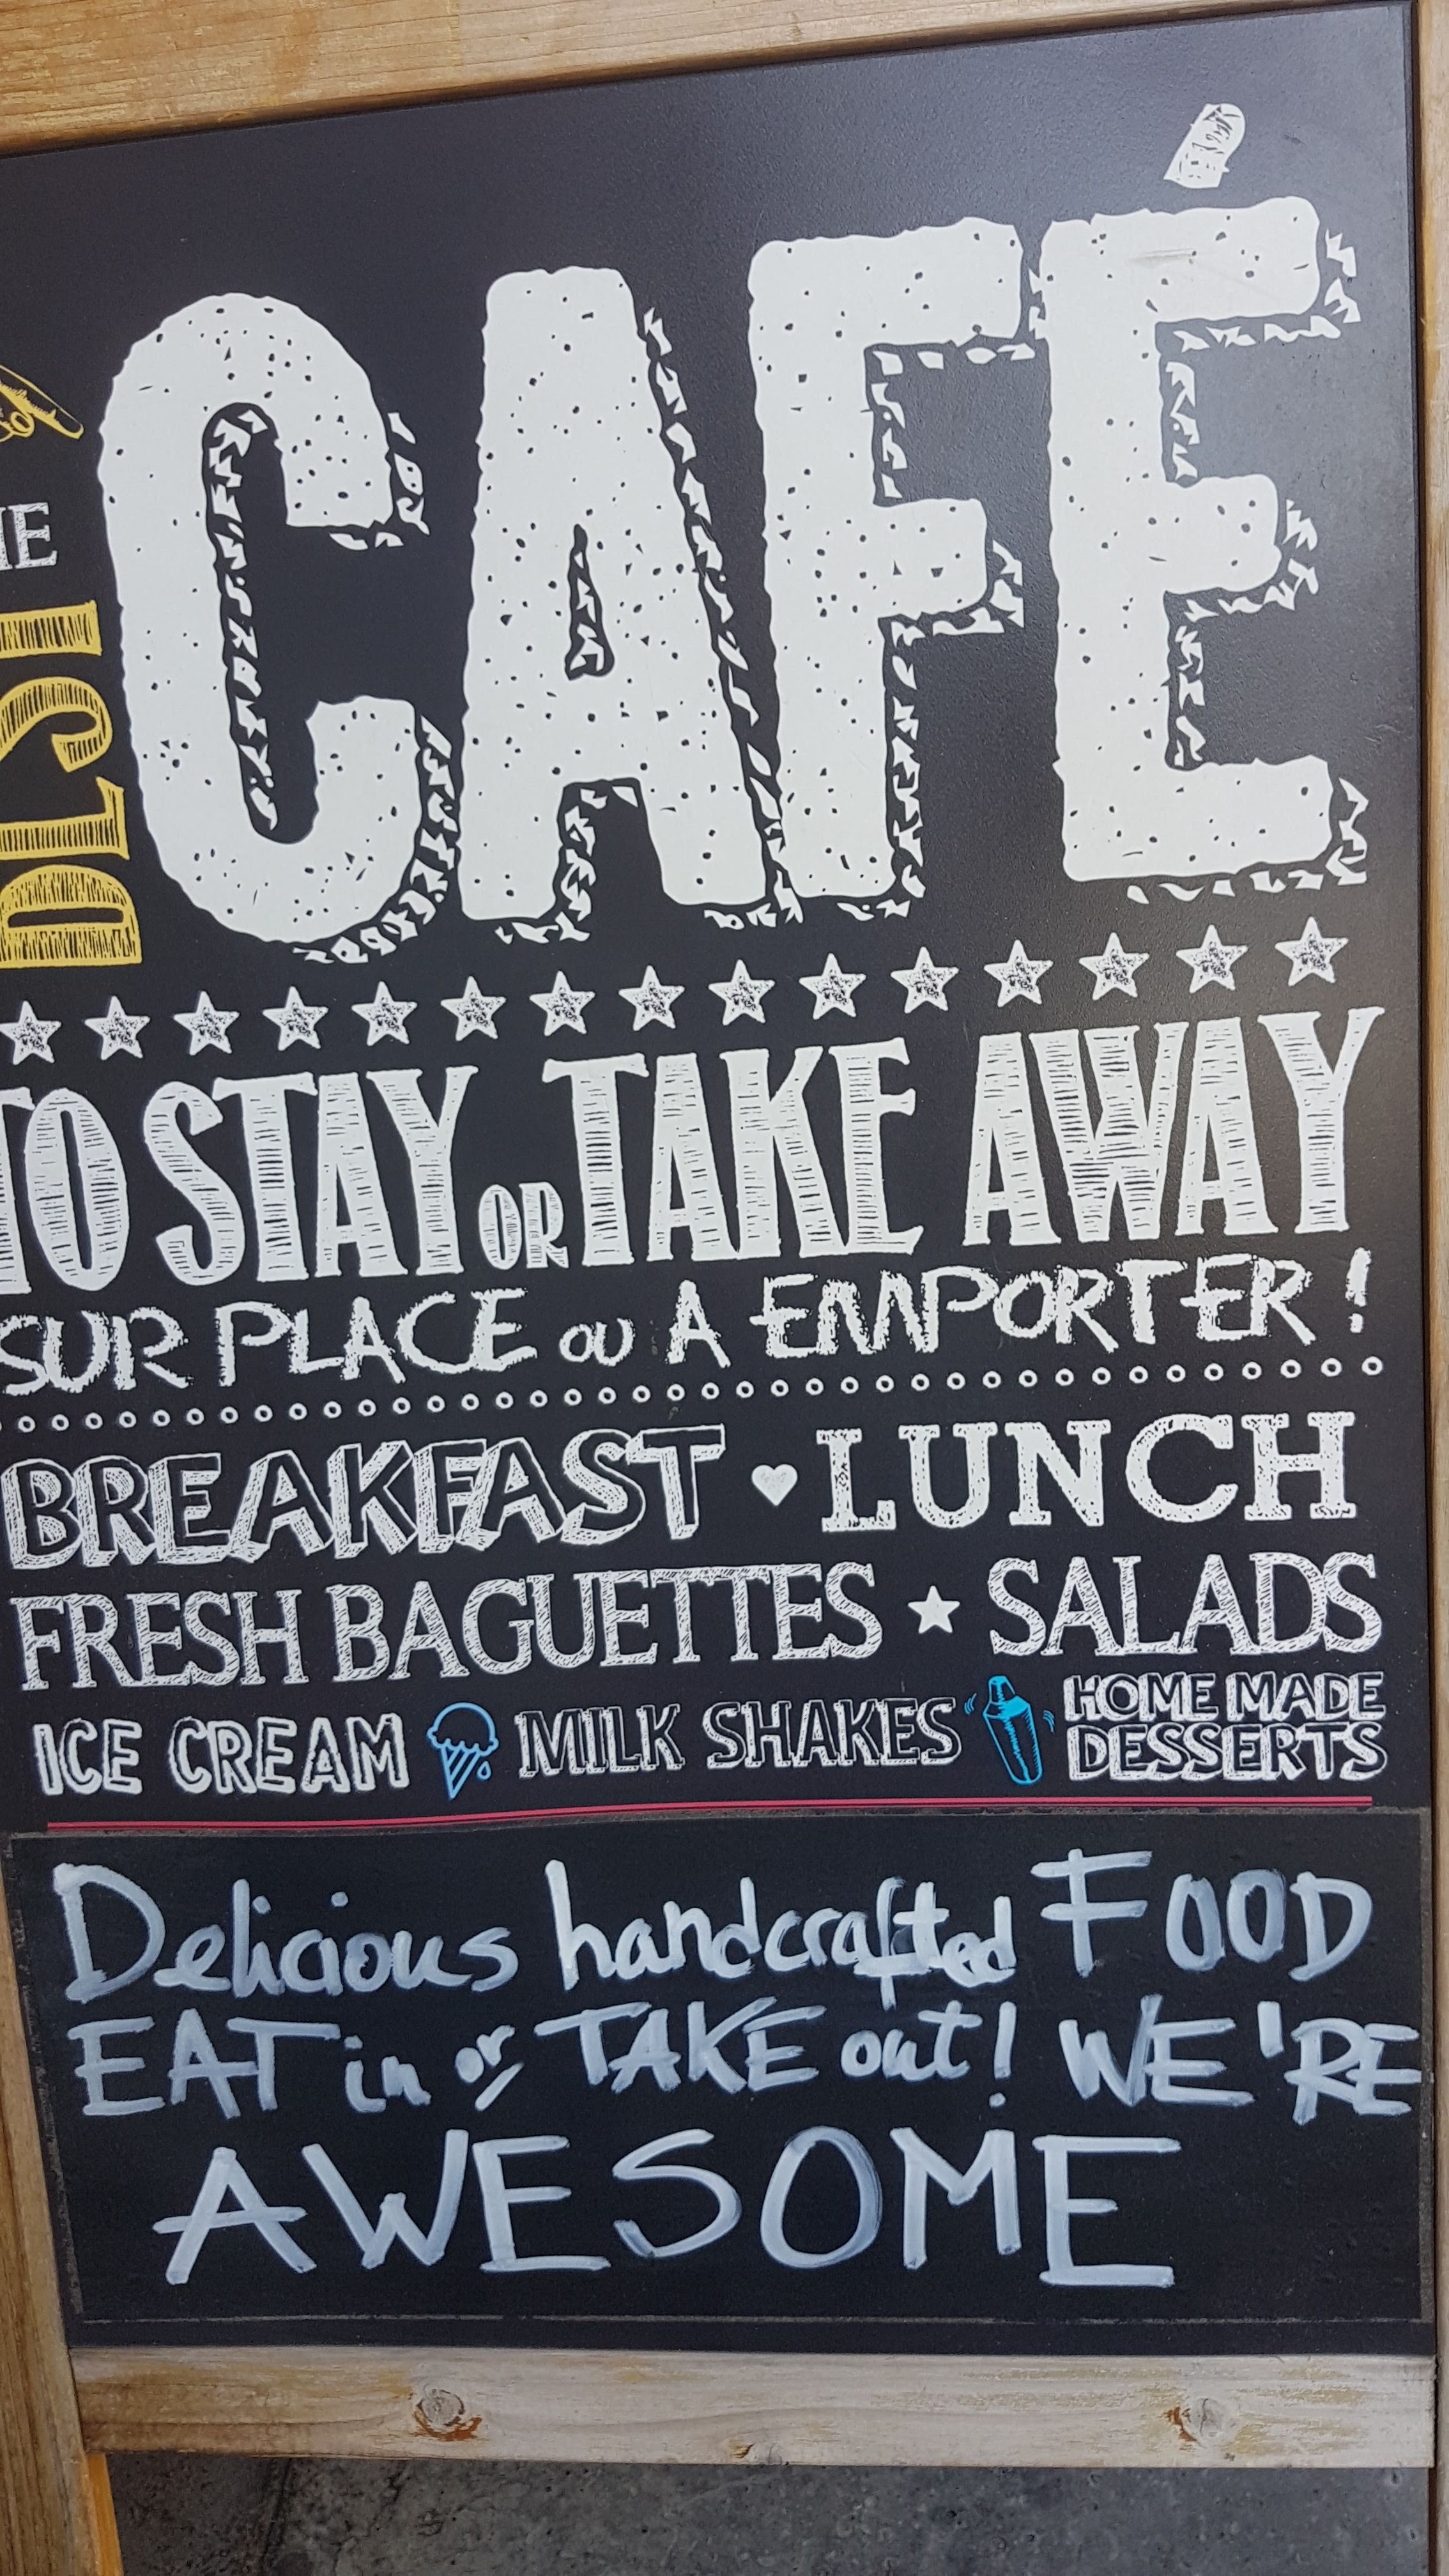 CAFÉ
TO STAY OR TAKE AWAY
SUR PLACE OU A EMPORTER !
BREAKFAST LUNCH
FRESH BAGUETTES SALADS
ICE CREAM MILK SHAKES HOME MADE DESSERTS
Delicious handcrafted FOOD
EAT in or TAKE out! WE'RE
AWESOME